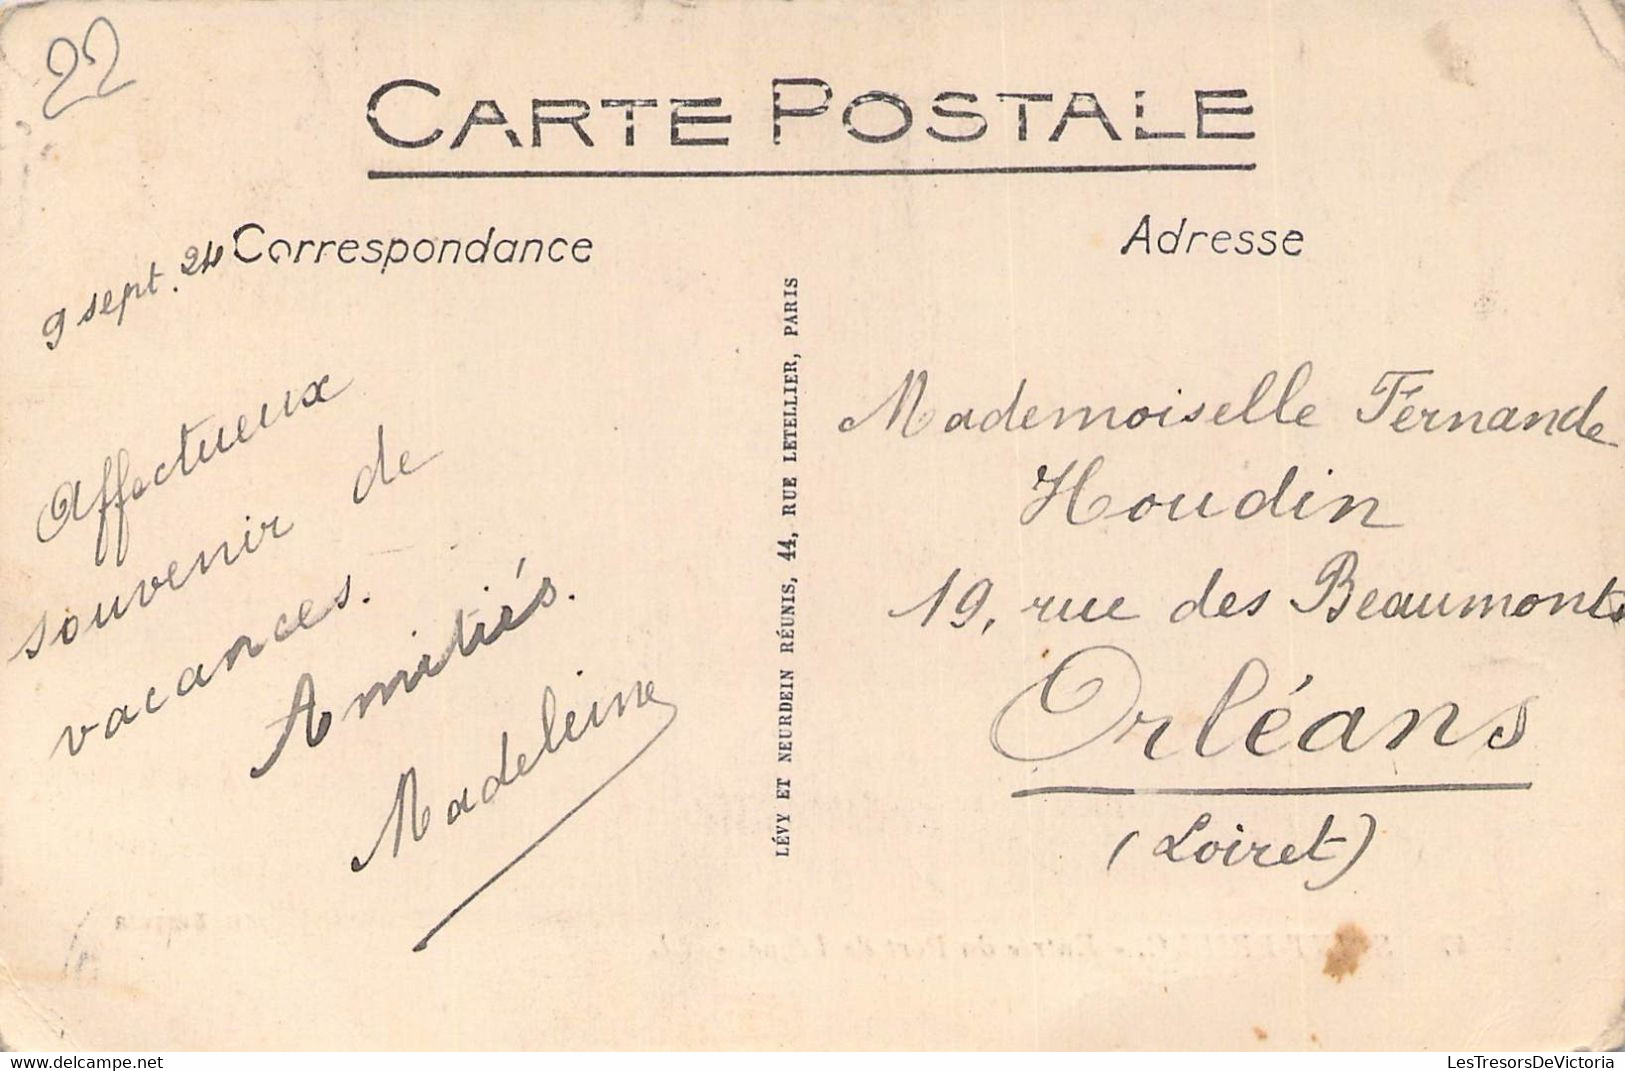 22
CARTE POSTALE
Correspondance
Adresse
9 sept. 24
Affectueux
souvenir de
vacances.
Amitiés.
Madeleine
LÉVY ET NEURDEIN RÉUNIS, 44, RUE LETELLIER, PARIS
Mademoiselle Fernande
Houdin
19, rue des Beaumonts
Orléans
(Loiret)
LesTresorsDeVictoria